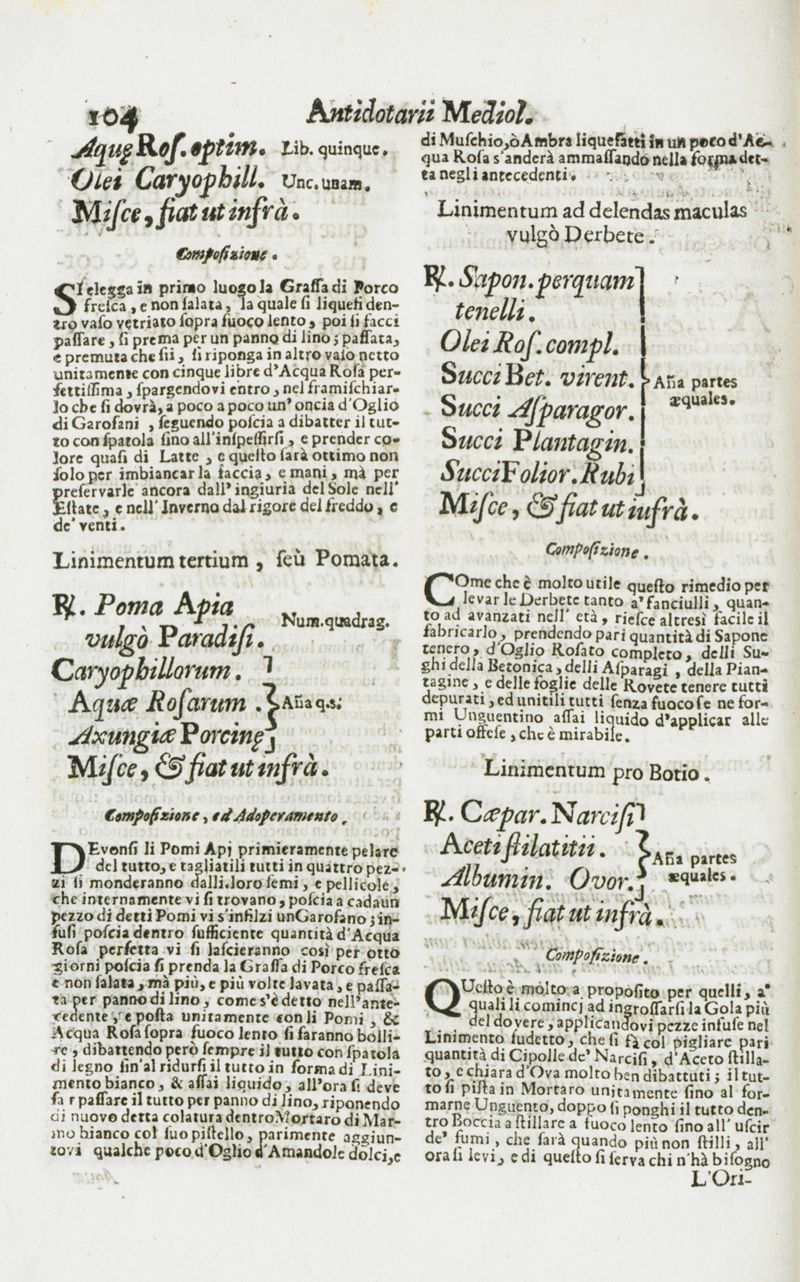 104 Antidotarii Mediol.
Aquę Roſ. optim. Lib. quinque.
Olei Caryophill. Unc. unam.
Miſce, fiat ut infrà.
Compoſizione.
SI elegga in primo luogo la Graſſa di Porco
freſca, e non ſalata, la quale ſi liquefi den-
tro vaſo vetriato ſopra fuoco lento, poi ſi facci
paſſare, ſi prema per un panno di lino; paſſata,
e premuta che ſii, ſi riponga in altro vaſo netto
unitamente con cinque libre d'Acqua Roſa per-
fettiſſima, ſpargendovi entro, nel framiſchiar-
lo che ſi dovrà, a poco a poco un' oncia d'Oglio
di Garofani , ſeguendo poſcia a dibatter il tut-
to con ſpatola ſino all'inſpeſſirſi, e prender co-
lore quaſi di Latte , e queſto ſarà ottimo non
ſolo per imbiancar la faccia, e mani, mà per
preſervarle ancora dall' ingiuria del Sole nell'
Eſtate, e nell' Inverno dal rigore del freddo, e
de' venti.
Linimentum tertium , ſeù Pomata.
℞. Poma Apia
vulgò Paradiſi. Num. quadrag.
Caryophillorum.
Aquæ Roſarum . Aña q.s.
Axungiæ Porcinę
Miſce, & fiat ut infrà.
Compoſizione, ed Adoperamento.
DEvonſi li Pomi Apj primieramente pelare
del tutto, e tagliatili tutti in quattro pez-
zi ſi monderanno dalli loro ſemi, e pellicole,
che internamente vi ſi trovano, poſcia a cadaun
pezzo di detti Pomi vi s'infilzi un Garofano; in-
fuſi poſcia dentro ſufficiente quantità d'Acqua
Roſa perfetta vi ſi laſcieranno così per otto
giorni poſcia ſi prenda la Graſſa di Porco freſca
e non ſalata, mà più, e più volte lavata, e paſſa-
ta per panno di lino, come s'è detto nell'ante-
cedente, e poſta unitamente con li Pomi , &
Acqua Roſa ſopra fuoco lento ſi faranno bolli-
re, dibattendo però ſempre il tutto con ſpatola
di legno ſin'al ridurſi il tutto in forma di Lini-
mento bianco, & aſſai liquido, all'ora ſi deve
fa r paſſare il tutto per panno di lino, riponendo
di nuovo detta colatura dentro Mortaro di Mar-
mo bianco col ſuo piſtello, parimente aggiun-
tovi qualche poco d'Oglio d'Amandole dolci, e
di Muſchio, ò Ambra liquefatti in un poco d'Ac-
qua Roſa s'anderà ammaſſando nella forma det-
ta negli antecedenti.
Linimentum ad delendas maculas
vulgò Derbete.
℞. Sapon. perquam
tenelli.
Olei Roſ. compl.
Succi Bet. virent. Aña partes
Succi Aſparagor. æquales.
Succi Plantagin.
Succi Folior. Rubi
Miſce, & fiat ut iufrà.
Compoſizione.
COme che è molto utile queſto rimedio per
levar le Derbete tanto a' fanciulli, quan-
to ad avanzati nell' età, rieſce altresì facile il
fabricarlo, prendendo pari quantità di Sapone
tenero, d'Oglio Roſato completo, delli Su-
ghi della Betonica, delli Aſparagi , della Pian-
tagine, e delle foglie delle Rovete tenere tutti
depurati, ed unitili tutti ſenza fuoco ſe ne for-
mi Unguentino aſſai liquido d'applicar alle
parti offeſe, che è mirabile.
Linimentum pro Botio.
℞. Cæpar. Narciſi
Aceti ſtilatitii. Aña partes
Albumin. Ovor. æquales.
Miſce, fiat ut infrà.
Compoſizione.
QUeſto è molto a propoſito per quelli, a'
quali li comincj ad ingroſſarſi la Gola più
del dovere, applicandovi pezze infuſe nel
Linimento ſudetto, che ſi fà col pigliare pari
quantità di Cipolle de' Narciſi, d'Aceto ſtilla-
to, e chiara d'Ova molto ben dibattuti; il tut-
to ſi piſta in Mortaro unitamente ſino al for-
marne Unguento, doppo ſi ponghi il tutto den-
tro Boccia a ſtillare a fuoco lento ſino all' uſcir
de' fumi, che ſarà quando più non ſtilli, all'
ora ſi levi, e di queſto ſi ſerva chi n'hà biſogno
L'Ori-